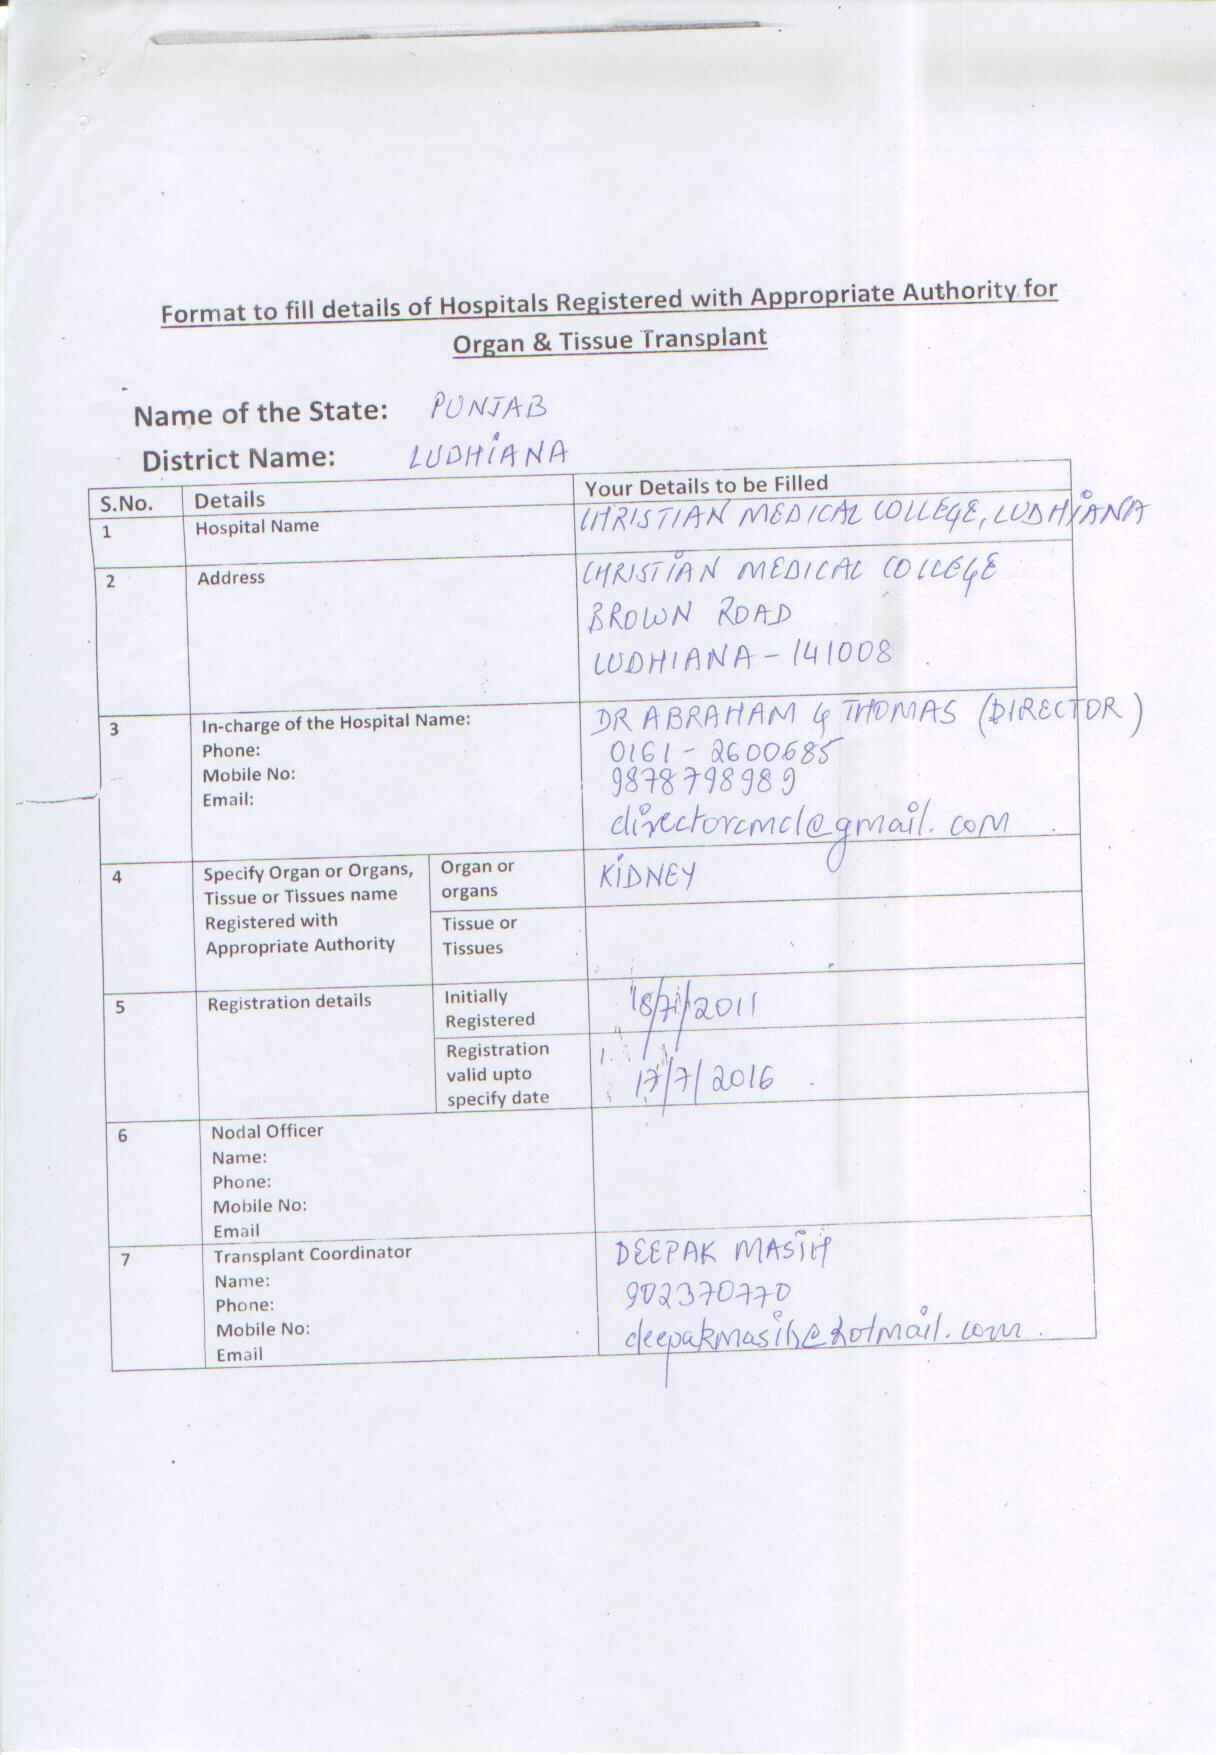 Format to fill details of Hospitals Registered with Appropriate Authority for
Organ & Tissue Transplant
Name of the State: PUNJAB
District Name: LUDHIANA
S.No. Details Your Details to be Filled
1 Hospital Name CHRISTIAN MEDICAL COLLEGE, LUDHIANA
2 Address CHRISTIAN MEDICAL COLLEGE
BROWN ROAD
LUDHIANA - 141008
3 In-charge of the Hospital Name: DR ABRAHAM G THOMAS (DIRECTOR)
Phone: 0161 - 2600685
Mobile No: 9878798989
Email: directorcmcl@gmail.com
4 Specify Organ or Organs, Tissue or Tissues name Registered with Appropriate Authority
Organ or organs KIDNEY
Tissue or Tissues
5 Registration details
Initially Registered 18/7/2011
Registration valid upto specify date 17/7/2016
6 Nodal Officer
Name:
Phone:
Mobile No:
Email
7 Transplant Coordinator
Name: DEEPAK MASIH
Phone:
Mobile No: 902370770
Email deepakmasih@hotmail.com